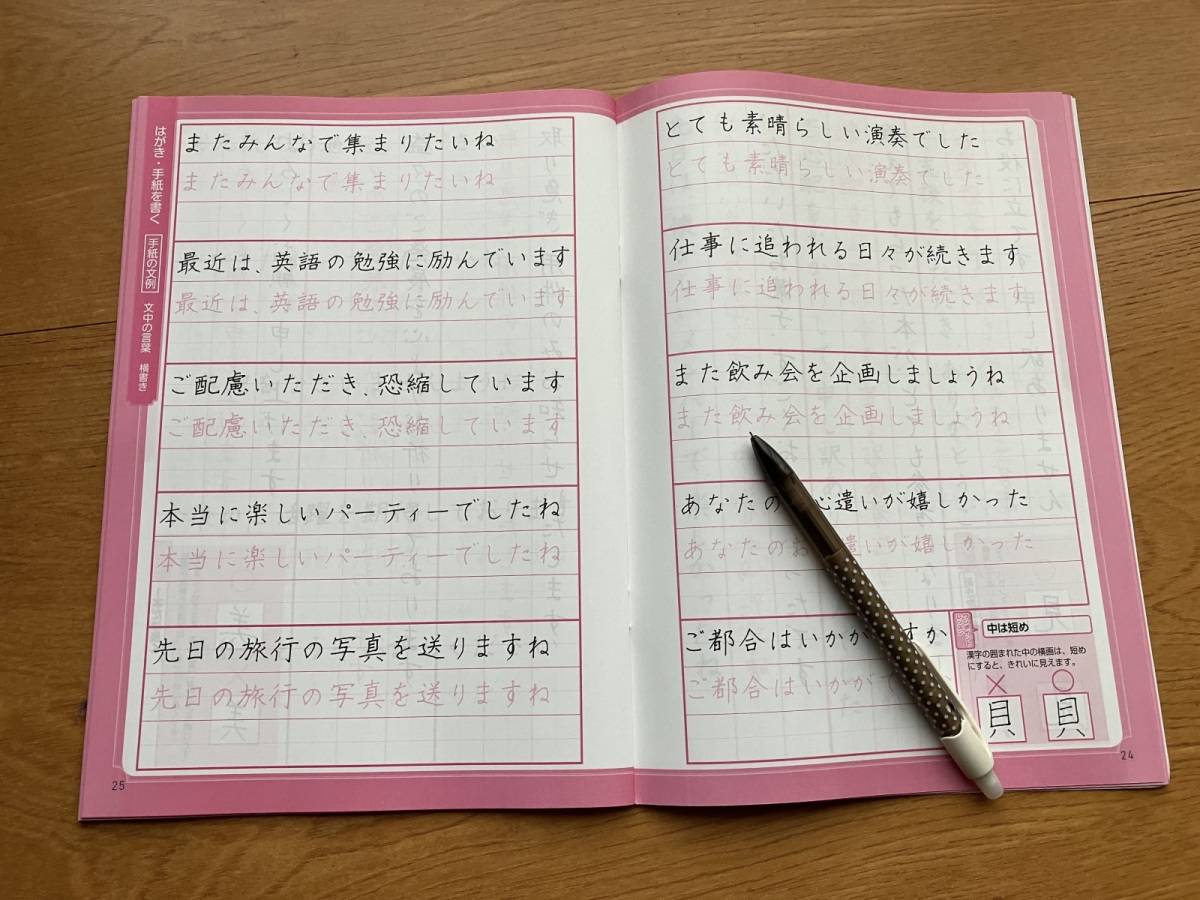 とても素晴らしい演奏でした
とても素晴らしい演奏でした
仕事に追われる日々が続きます
仕事に追われる日々が続きます
また飲み会を企画しましょうね
また飲み会を企画しましょうね
あなたの 心遣いが嬉しかった
あなたのお 遣いが嬉しかった
ご都合はいかが すか
ご都合はいかがで
中は短め
漢字の囲まれた中の横画は、短め
にすると、きれいに見えます。
× ○
貝 貝
24
はがき・手紙を書く 手紙の文例 文中の言葉 横書き
またみんなで集まりたいね
またみんなで集まりたいね
最近は、英語の勉強に励んでいます
最近は、英語の勉強に励んでいます
ご配慮いただき、恐縮しています
ご配慮いただき、恐縮しています
本当に楽しいパーティーでしたね
本当に楽しいパーティーでしたね
先日の旅行の写真を送りますね
先日の旅行の写真を送りますね
25